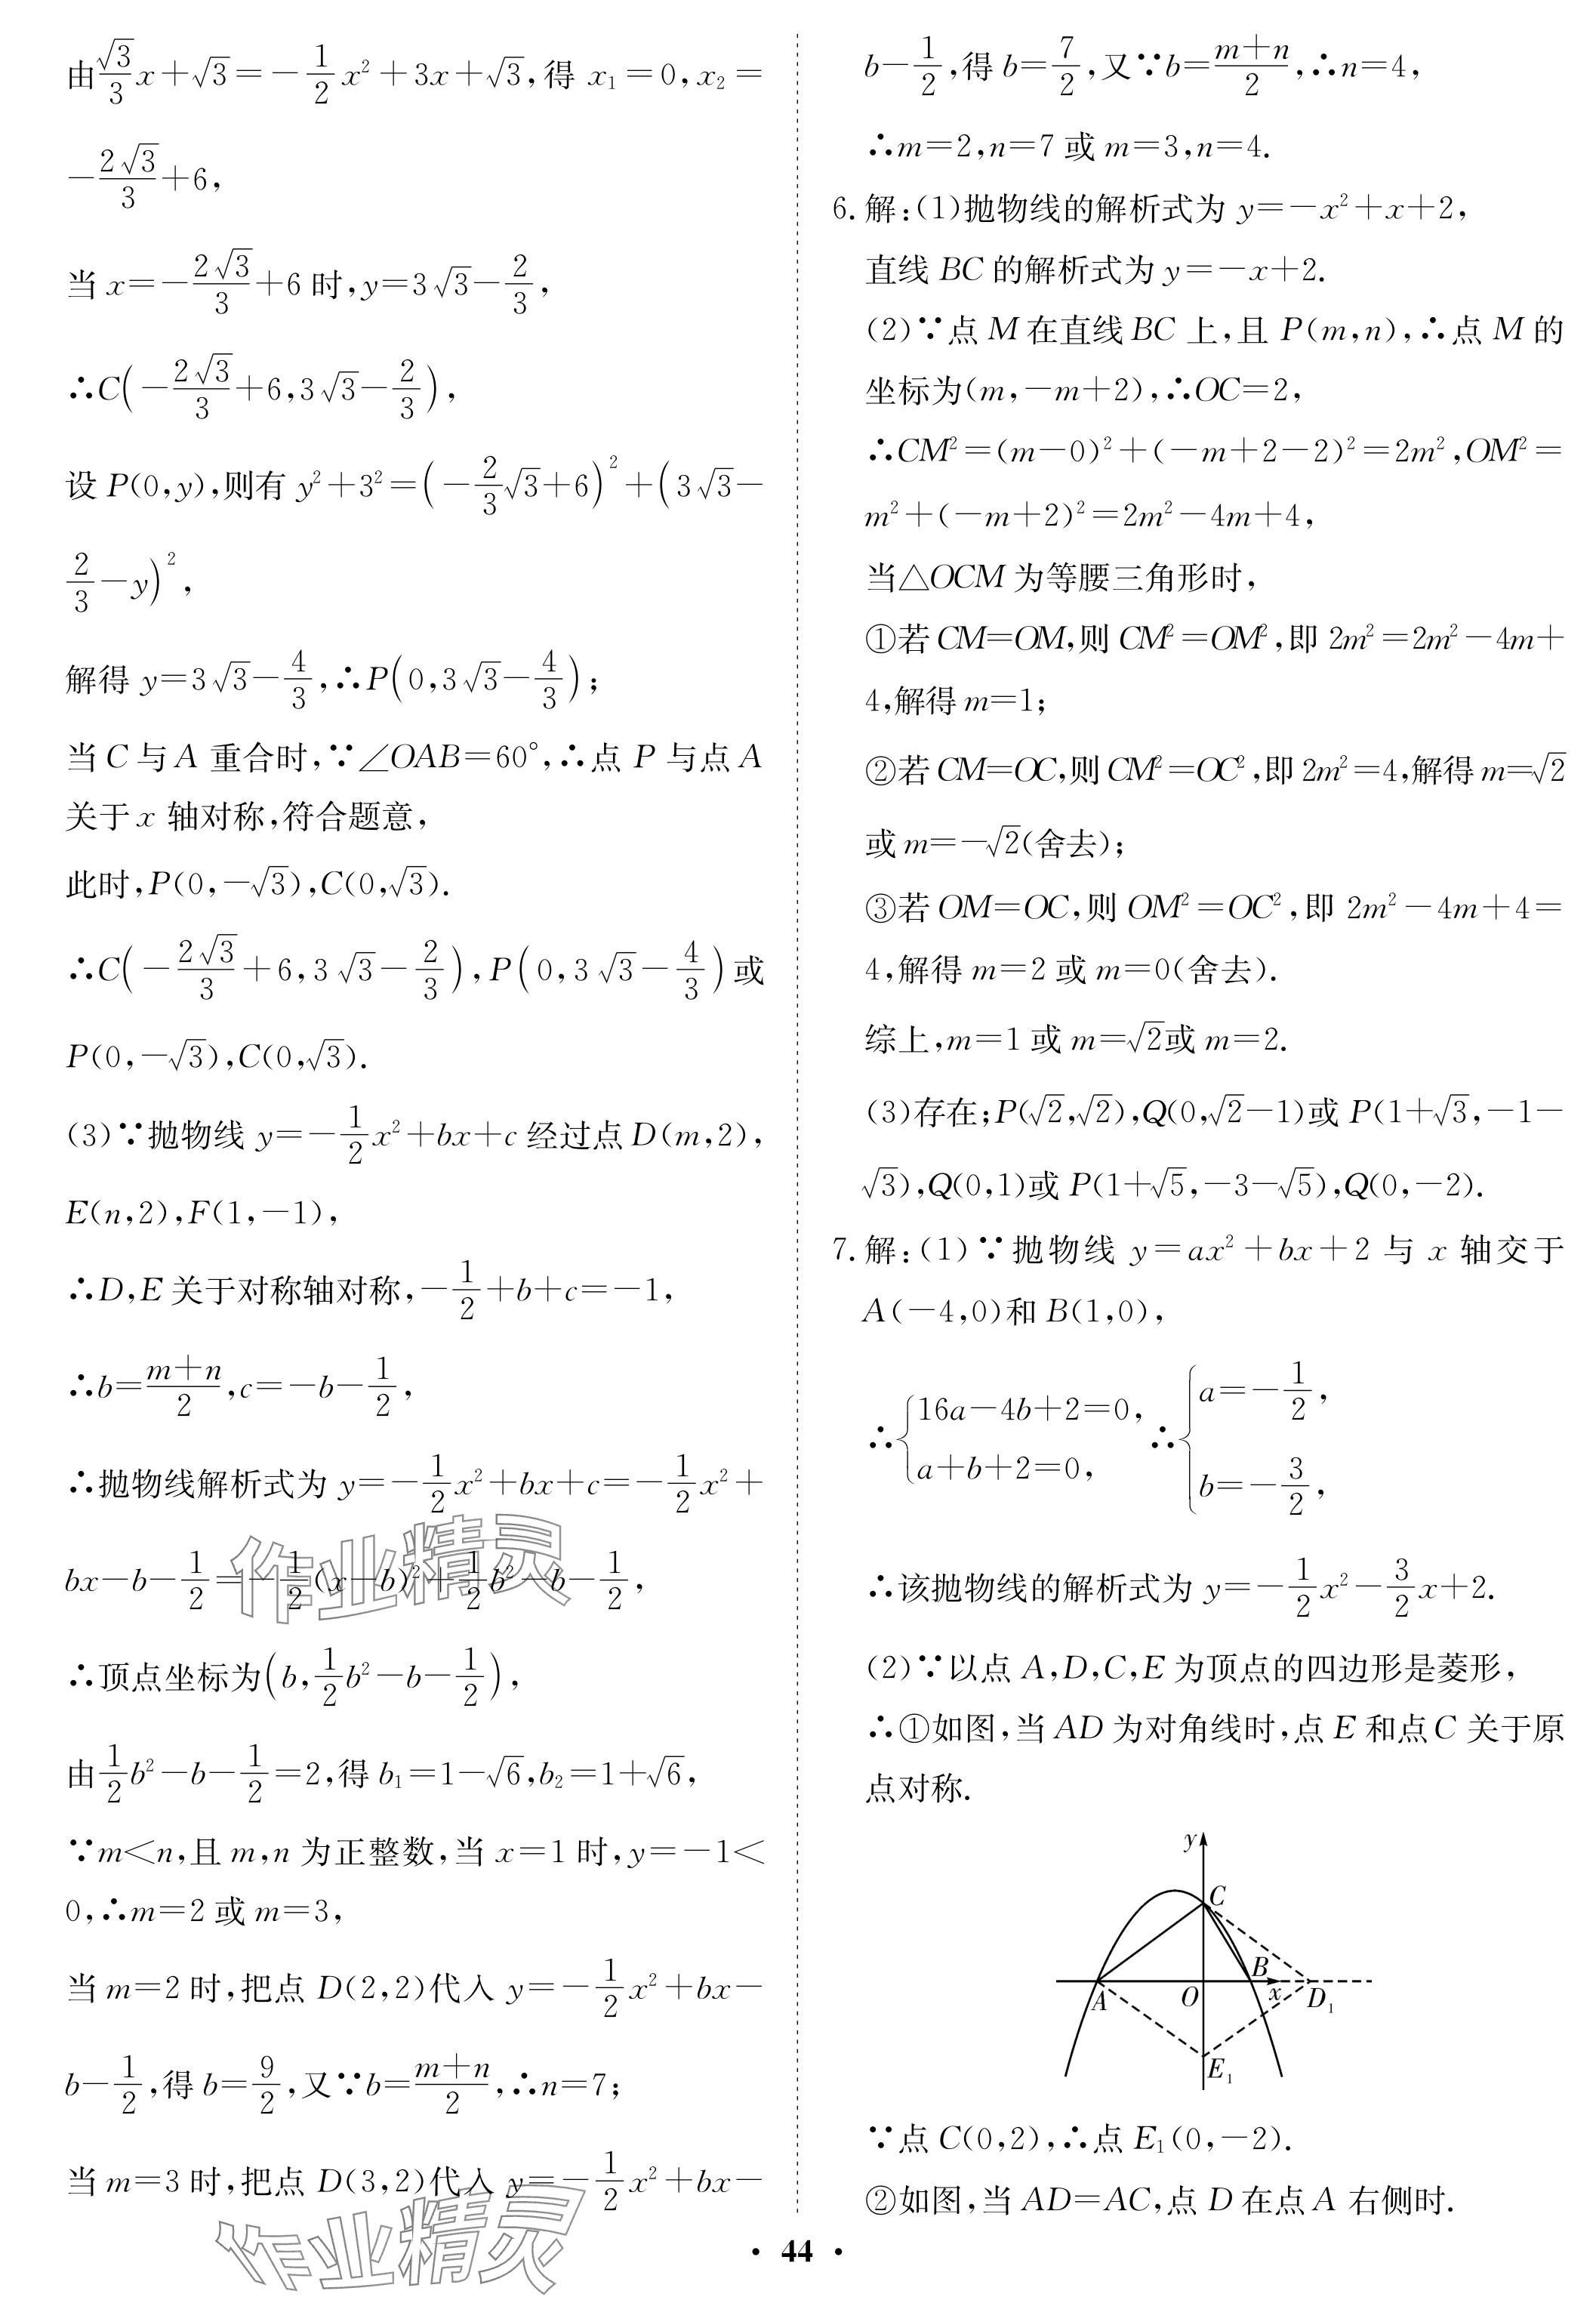 由\frac{\sqrt{3}}{3}x+\sqrt{3}=-\frac{1}{2}x²+3x+\sqrt{3},得 x₁=0,x₂=
-\frac{2\sqrt{3}}{3}+6,
当 x=-\frac{2\sqrt{3}}{3}+6 时,y=3\sqrt{3}-\frac{2}{3},
∴C(-\frac{2\sqrt{3}}{3}+6,3\sqrt{3}-\frac{2}{3}),
设 P(0,y),则有 y²+3²=(-\frac{2}{3}\sqrt{3}+6)²+(3\sqrt{3}-
\frac{2}{3}-y)²,
解得 y=3\sqrt{3}-\frac{4}{3},∴P(0,3\sqrt{3}-\frac{4}{3});
当 C 与 A 重合时,∵∠OAB=60°,∴点 P 与点 A
关于 x 轴对称,符合题意,
此时,P(0,-\sqrt{3}),C(0,\sqrt{3}).
∴C(-\frac{2\sqrt{3}}{3}+6,3\sqrt{3}-\frac{2}{3}),P(0,3\sqrt{3}-\frac{4}{3})或
P(0,-\sqrt{3}),C(0,\sqrt{3}).
(3)∵抛物线 y=-\frac{1}{2}x²+bx+c 经过点 D(m,2),
E(n,2),F(1,-1),
∴D,E 关于对称轴对称,-\frac{1}{2}+b+c=-1,
∴b=\frac{m+n}{2},c=-b-\frac{1}{2},
∴抛物线解析式为 y=-\frac{1}{2}x²+bx+c=-\frac{1}{2}x²+
bx-b-\frac{1}{2}=-\frac{1}{2}(x-b)²+\frac{1}{2}b²-b-\frac{1}{2},
作业精灵
∴顶点坐标为(b,\frac{1}{2}b²-b-\frac{1}{2}),
由\frac{1}{2}b²-b-\frac{1}{2}=2,得 b₁=1-\sqrt{6},b₂=1+\sqrt{6},
∵m<n,且 m,n 为正整数,当 x=1 时,y=-1<
0,∴m=2 或 m=3,
当 m=2 时,把点 D(2,2)代入 y=-\frac{1}{2}x²+bx-
b-\frac{1}{2},得 b=\frac{9}{2},又∵b=\frac{m+n}{2},∴n=7;
当 m=3 时,把点 D(3,2)代入 y=-\frac{1}{2}x²+bx-
作业精灵
b-\frac{1}{2},得 b=\frac{7}{2},又∵b=\frac{m+n}{2},∴n=4,
∴m=2,n=7 或 m=3,n=4.
6. 解:(1)抛物线的解析式为 y=-x²+x+2,
直线 BC 的解析式为 y=-x+2.
(2)∵点 M 在直线 BC 上,且 P(m,n),∴点 M 的
坐标为(m,-m+2),∴OC=2,
∴CM²=(m-0)²+(-m+2-2)²=2m²,OM²=
m²+(-m+2)²=2m²-4m+4,
当△OCM 为等腰三角形时,
①若 CM=OM,则 CM²=OM²,即 2m²=2m²-4m+
4,解得 m=1;
②若 CM=OC,则 CM²=OC²,即 2m²=4,解得 m=\sqrt{2}
或 m=-\sqrt{2}(舍去);
③若 OM=OC,则 OM²=OC²,即 2m²-4m+4=
4,解得 m=2 或 m=0(舍去).
综上,m=1 或 m=\sqrt{2}或 m=2.
(3)存在;P(\sqrt{2},\sqrt{2}),Q(0,\sqrt{2}-1)或 P(1+\sqrt{3},-1-
\sqrt{3}),Q(0,1)或 P(1+\sqrt{5},-3-\sqrt{5}),Q(0,-2).
7. 解:(1)∵抛物线 y=ax²+bx+2 与 x 轴交于
A(-4,0)和 B(1,0),
∴{16a-4b+2=0, a+b+2=0, ∴{a=-\frac{1}{2}, b=-\frac{3}{2},
∴该抛物线的解析式为 y=-\frac{1}{2}x²-\frac{3}{2}x+2.
(2)∵以点 A,D,C,E 为顶点的四边形是菱形,
∴①如图,当 AD 为对角线时,点 E 和点 C 关于原
点对称.
y
C
B
A
O
x
D₁
E₁
∵点 C(0,2),∴点 E₁(0,-2).
②如图,当 AD=AC,点 D 在点 A 右侧时.
· 44 ·